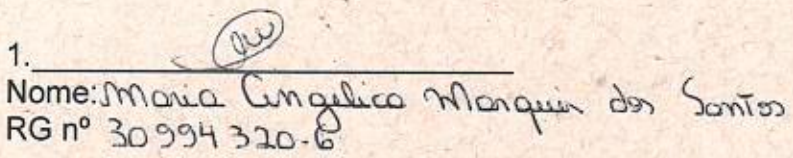 1.
Nome: Maria Angelica Marquin dos Santos
RG nº 30994320-6